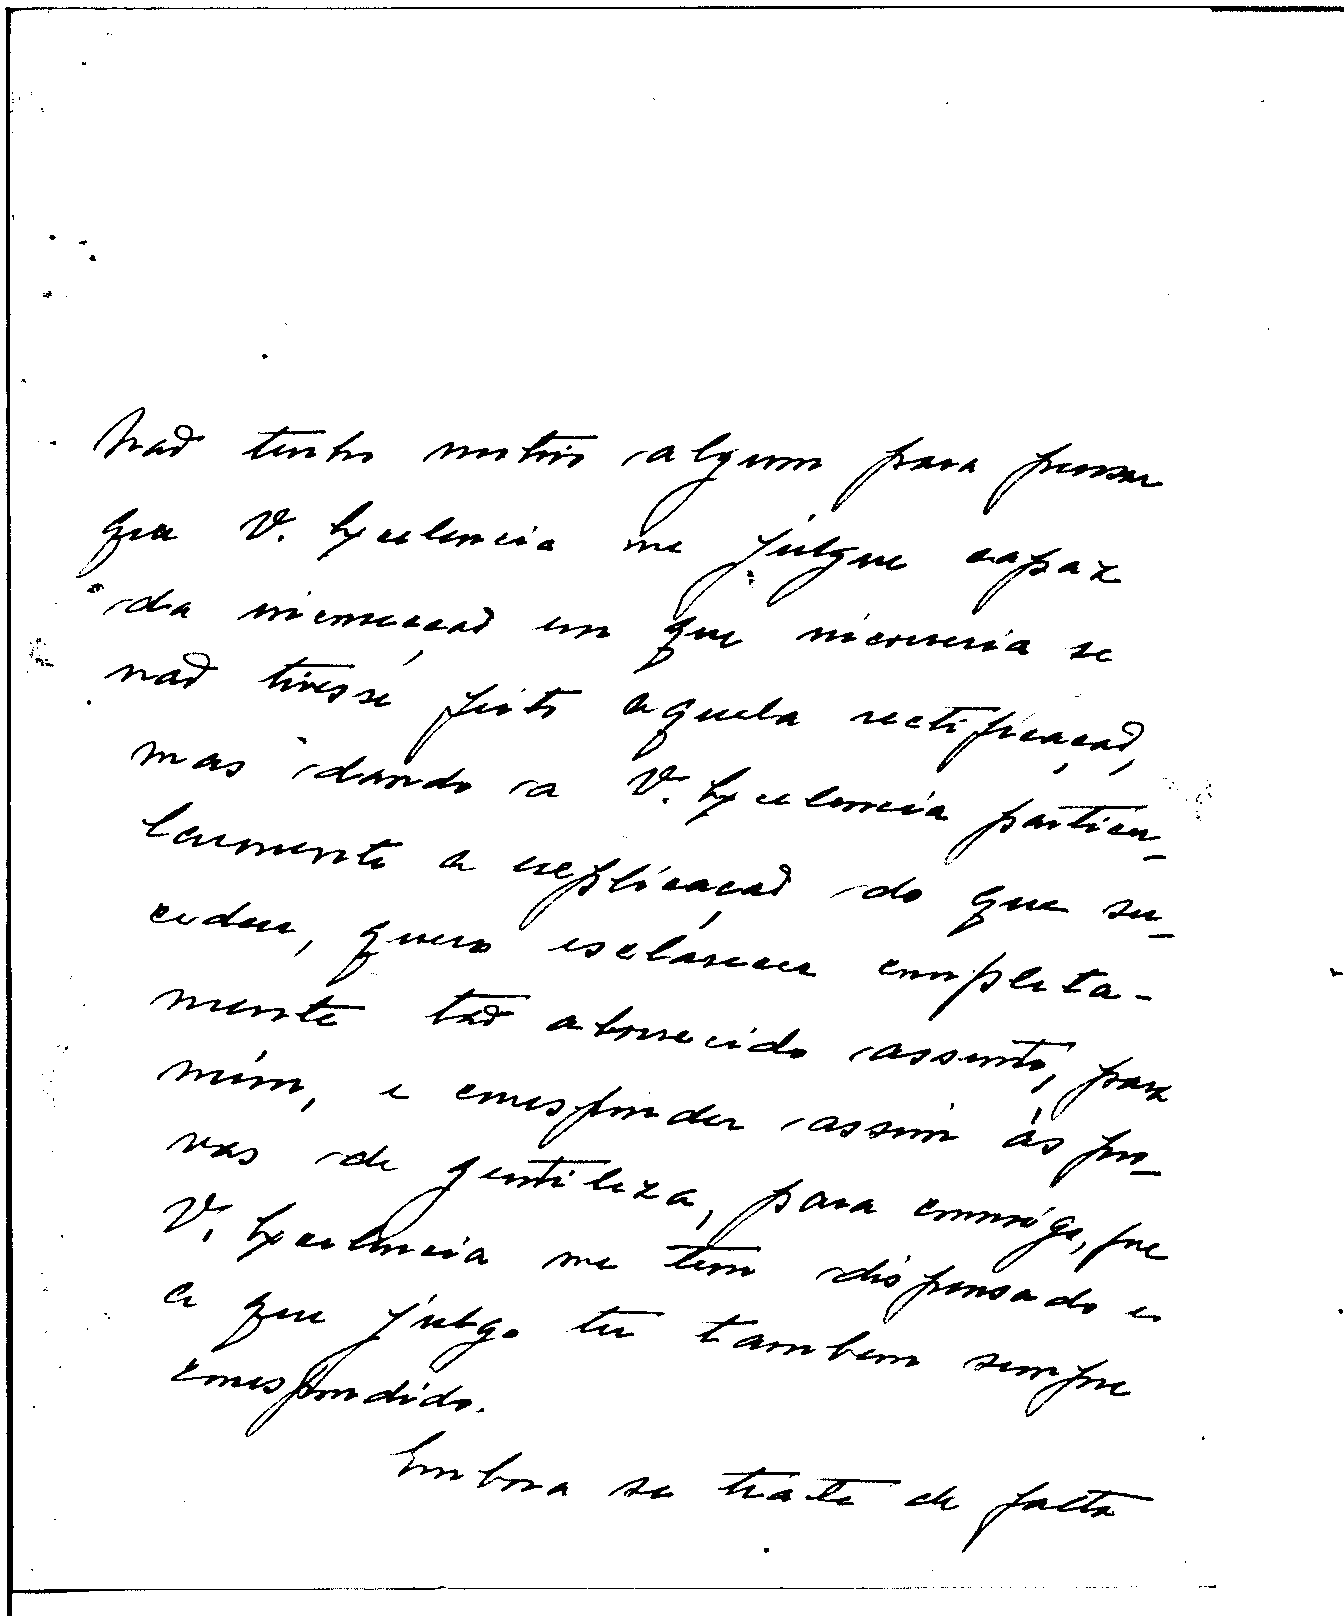 Não tenho motivo algum para pensar
que V. Excelencia me julgue capaz
da incorrecção em que incorreria se
não tivesse feito aquela rectificação,
mas dando a V. Excelencia particu-
larmente a explicação do que su-
cedeu, quero esclarecer completa-
mente tão aborrecido assunto, para
mim, e corresponder assim ás pro-
vas de gentileza, para commigo, que
V. Excelencia me tem dispensado e
a que julgo ter tambem sempre
correspondido.
Embora se trate de falta